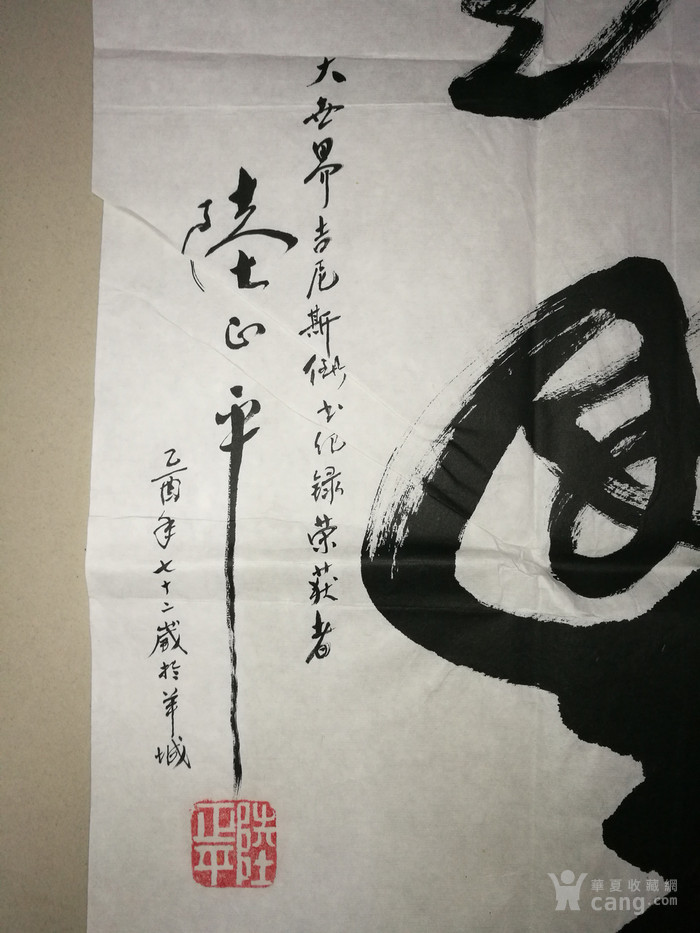 大世界吉尼斯倒书纪录荣获者
陸正平
乙酉年七十二歲於羊城
陸正平
華夏收藏網
cang.com